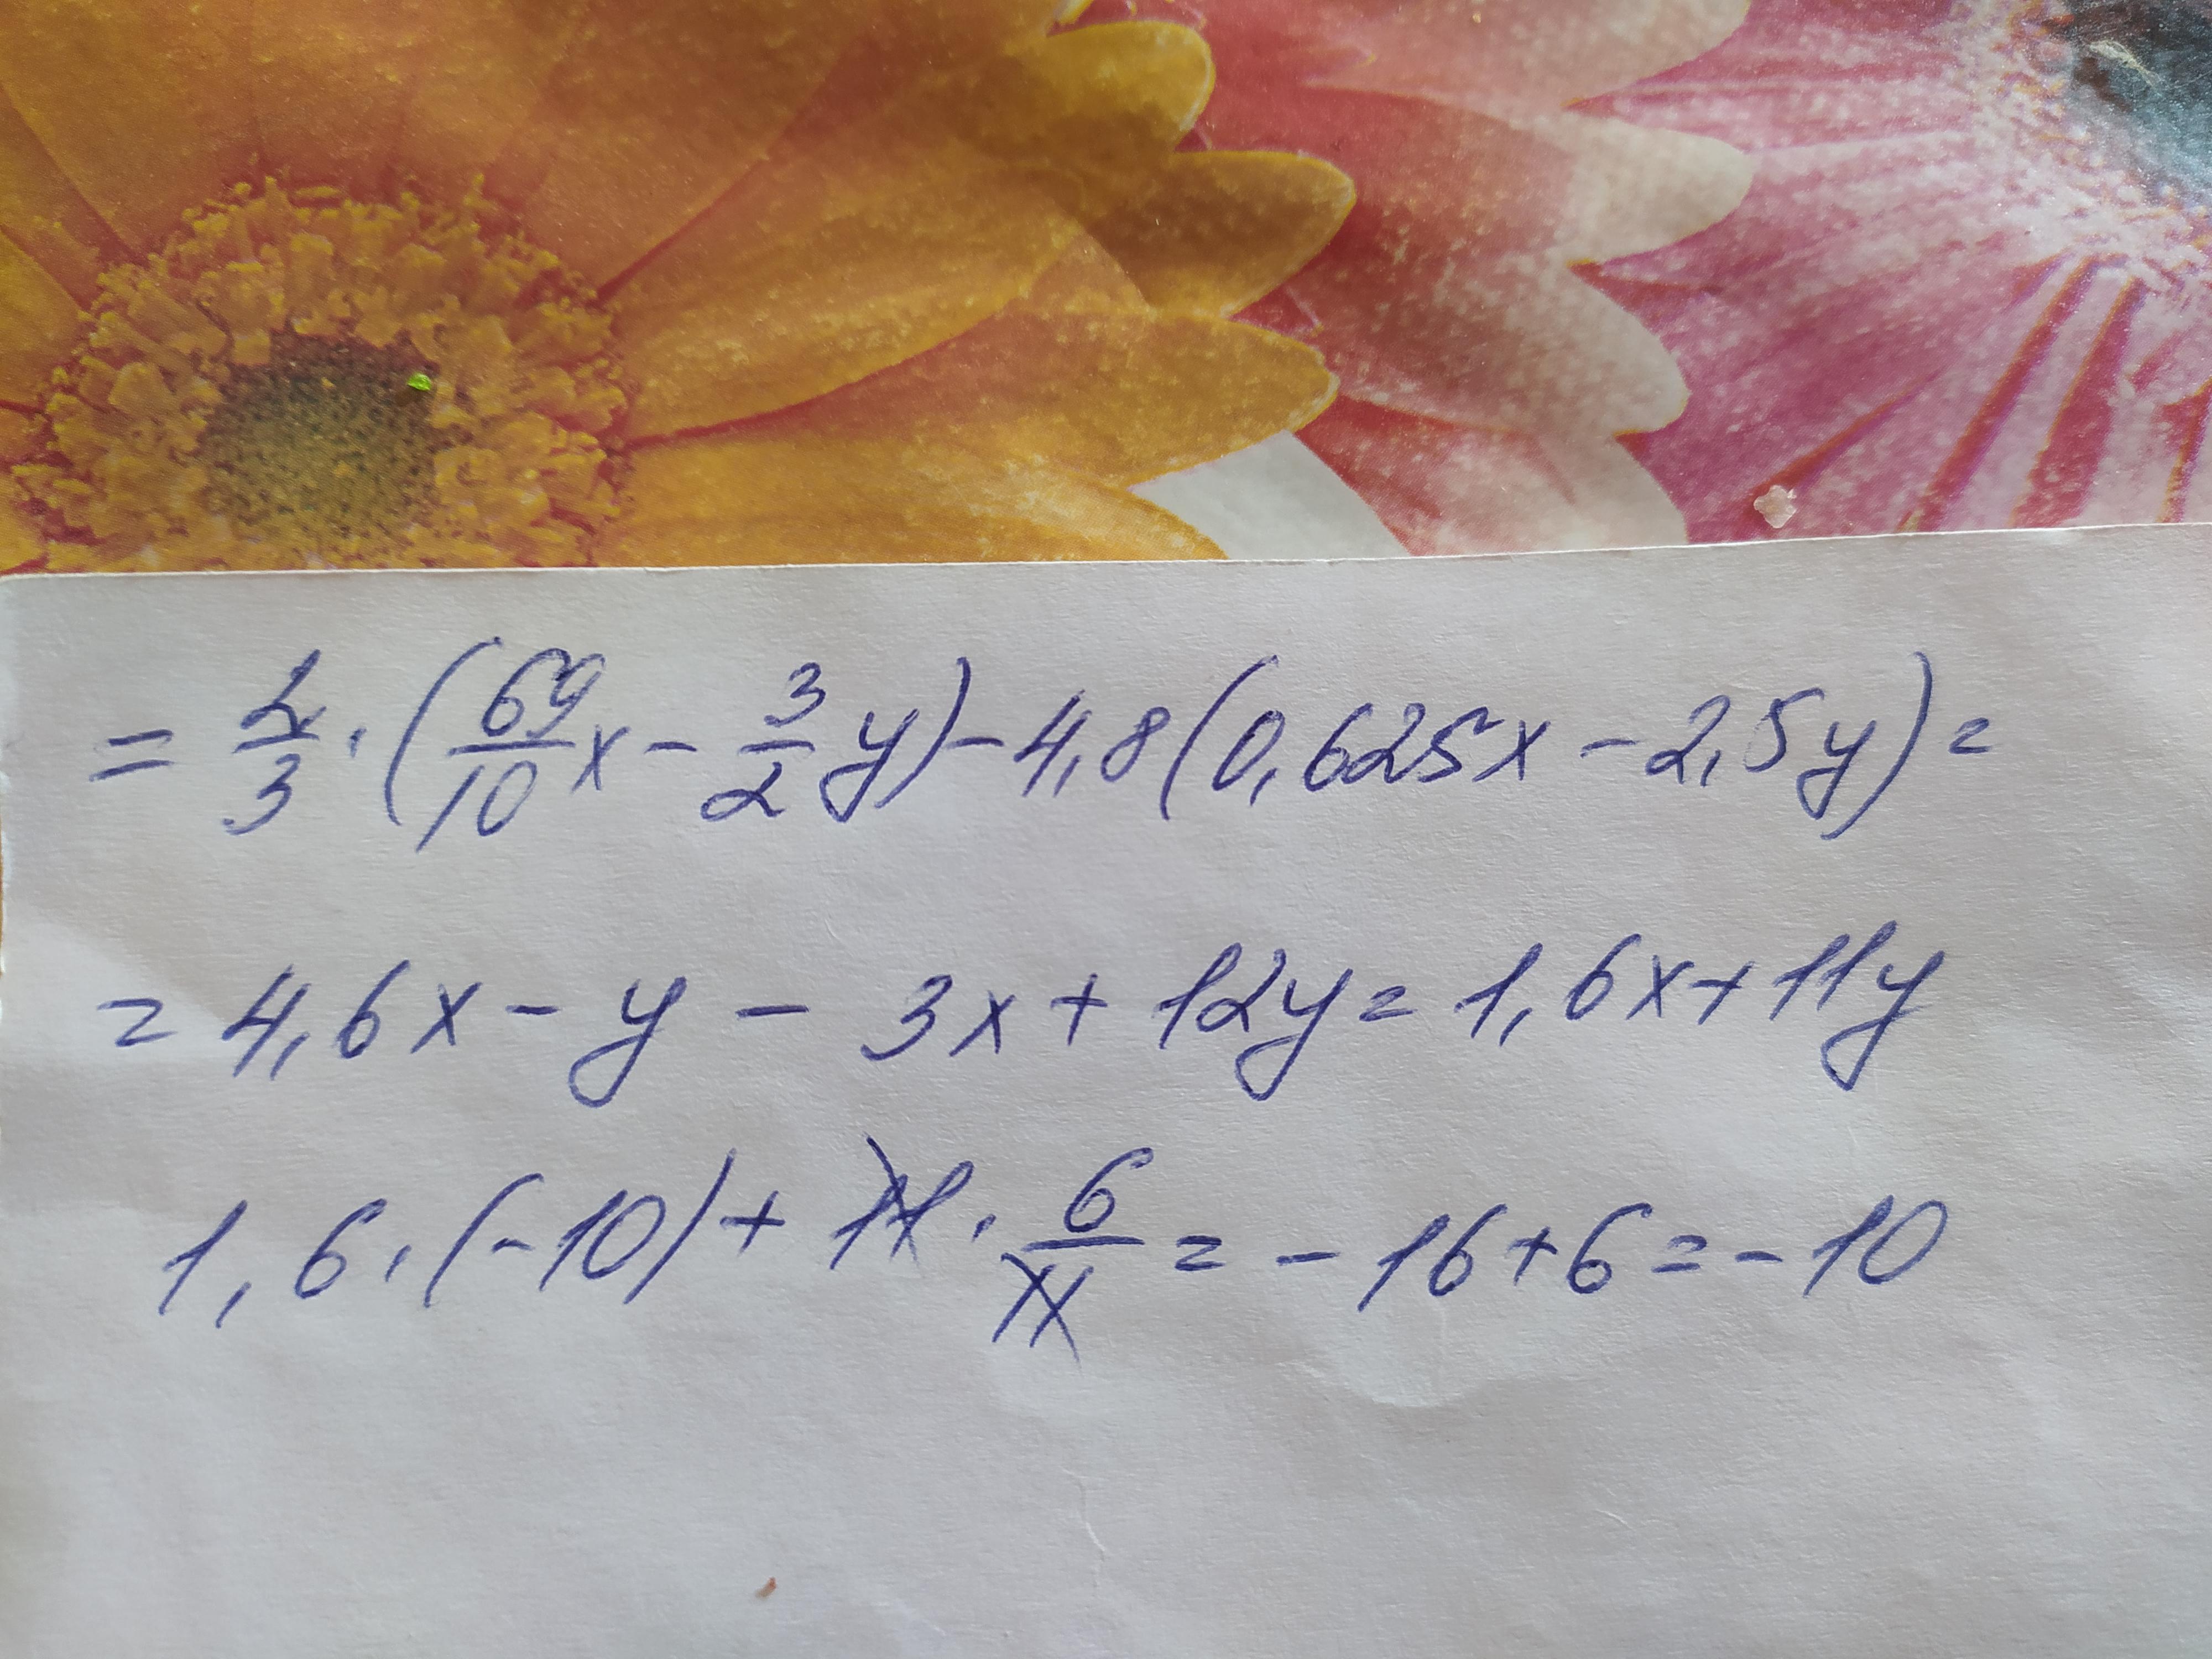 = 2/3 · (69/10 x - 3/2 y) - 4,8(0,625x - 2,5y) =
= 4,6x - y - 3x + 12y = 1,6x + 11y
1,6 · (-10) + 11 · 6/11 = - 16 + 6 = - 10